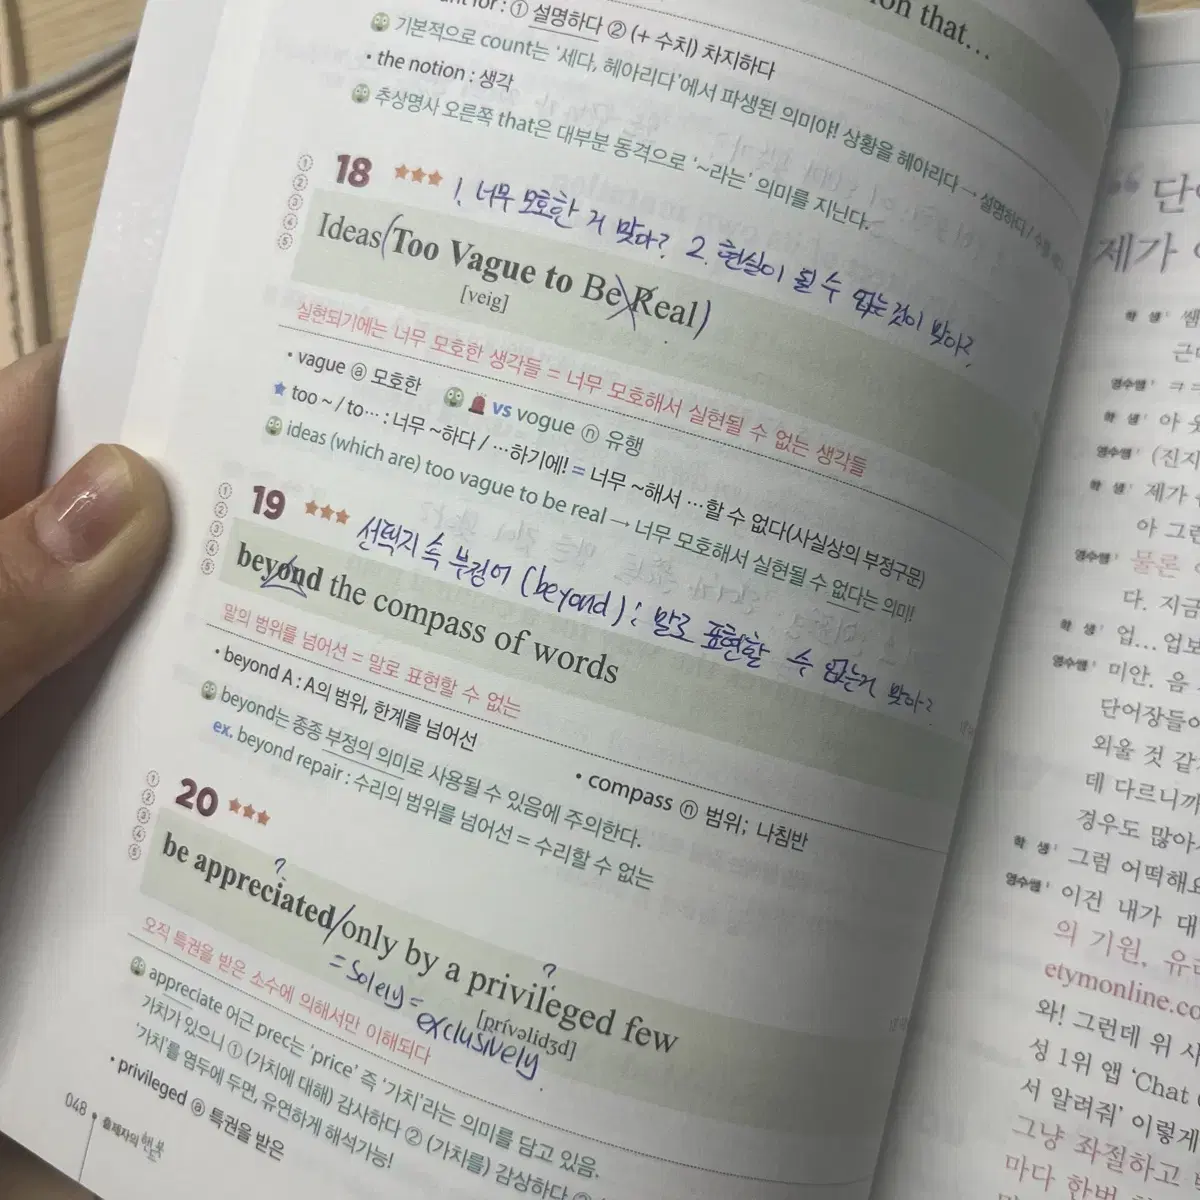 for : ① 설명하다 ② (+ 수치) 차지하다
기본적으로 count는 '세다, 헤아리다'에서 파생된 의미야! 상황을 헤아리다 → 설명하다 /
• the notion : 생각
추상명사 오른쪽 that은 대부분 동격으로 '~라는' 의미를 지닌다.
that…
18 ★★★
① ② ③ ④ ⑤
1. 너무 모호한 거 맞아? 2. 현실이 될 수 없는 것이 맞아?
Ideas (Too Vague to Be Real)
[veig]
실현되기에는 너무 모호한 생각들 = 너무 모호해서 실현될 수 없는 생각들
• vague ⓐ 모호한 vs vogue ⓝ 유행
★ too ~ / to … : 너무 ~하다 / …하기에! = 너무 ~해서 …할 수 없다(사실상의 부정구문)
ideas (which are) too vague to be real → 너무 모호해서 실현될 수 없다는 의미!
19 ★★★
① ② ③ ④ ⑤
선택지 속 부정어 (beyond) : 말로 표현할 수 없는거 맞아?
beyond the compass of words
말의 범위를 넘어선 = 말로 표현할 수 없는
• beyond A : A의 범위, 한계를 넘어선
• compass ⓝ 범위; 나침반
beyond는 종종 부정의 의미로 사용될 수 있음에 주의한다.
ex. beyond repair : 수리의 범위를 넘어선 = 수리할 수 없는
20 ★★★
① ② ③ ④ ⑤
? ?
be appreciated/only by a privileged few
= solely = exclusively
[prívəlidʒd]
오직 특권을 받은 소수에 의해서만 이해되다
appreciate 어근 prec는 'price' 즉 '가치'라는 의미를 담고 있음.
가치가 있으니 ① (가치에 대해) 감사하다 ② (가치를) 감상하다
'가치'를 염두에 두면, 유연하게 해석가능!
• privileged ⓐ 특권을 받은
048 • 출제자의 핸북
“ 단
제가
학 생 쌤
근데
영수쌤 ㅋㅋ
학 생 아
영수쌤 (진지
학 생 제가
아 그런
영수쌤 물론
다. 지금
학 생 업… 업보
영수쌤 미안. 음
단어장들이
외울 것 같
데 다르니까
경우도 많아
학 생 그럼 어떡해요
영수쌤 이건 내가 대
의 기원, 유래
etymonline.co
와! 그런데 위 사
성 1위 앱 'Chat
서 알려줘' 이렇게
그냥 좌절하고
마다 한번